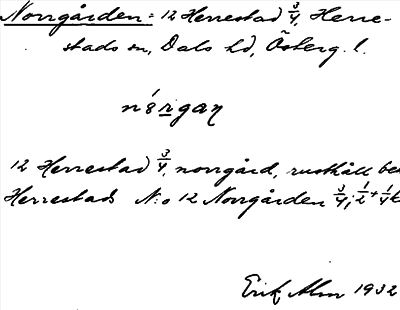 Norrgården = 12 Herrestad 3/4, Herre-
stads sn, Dals hd, Österg. l.
12 Herrestad 3/4, norrgård, rusthåll
Herrestads N:o 12 Norrgården 3/4; 1/2 + 1/4
Erik Alm 1932